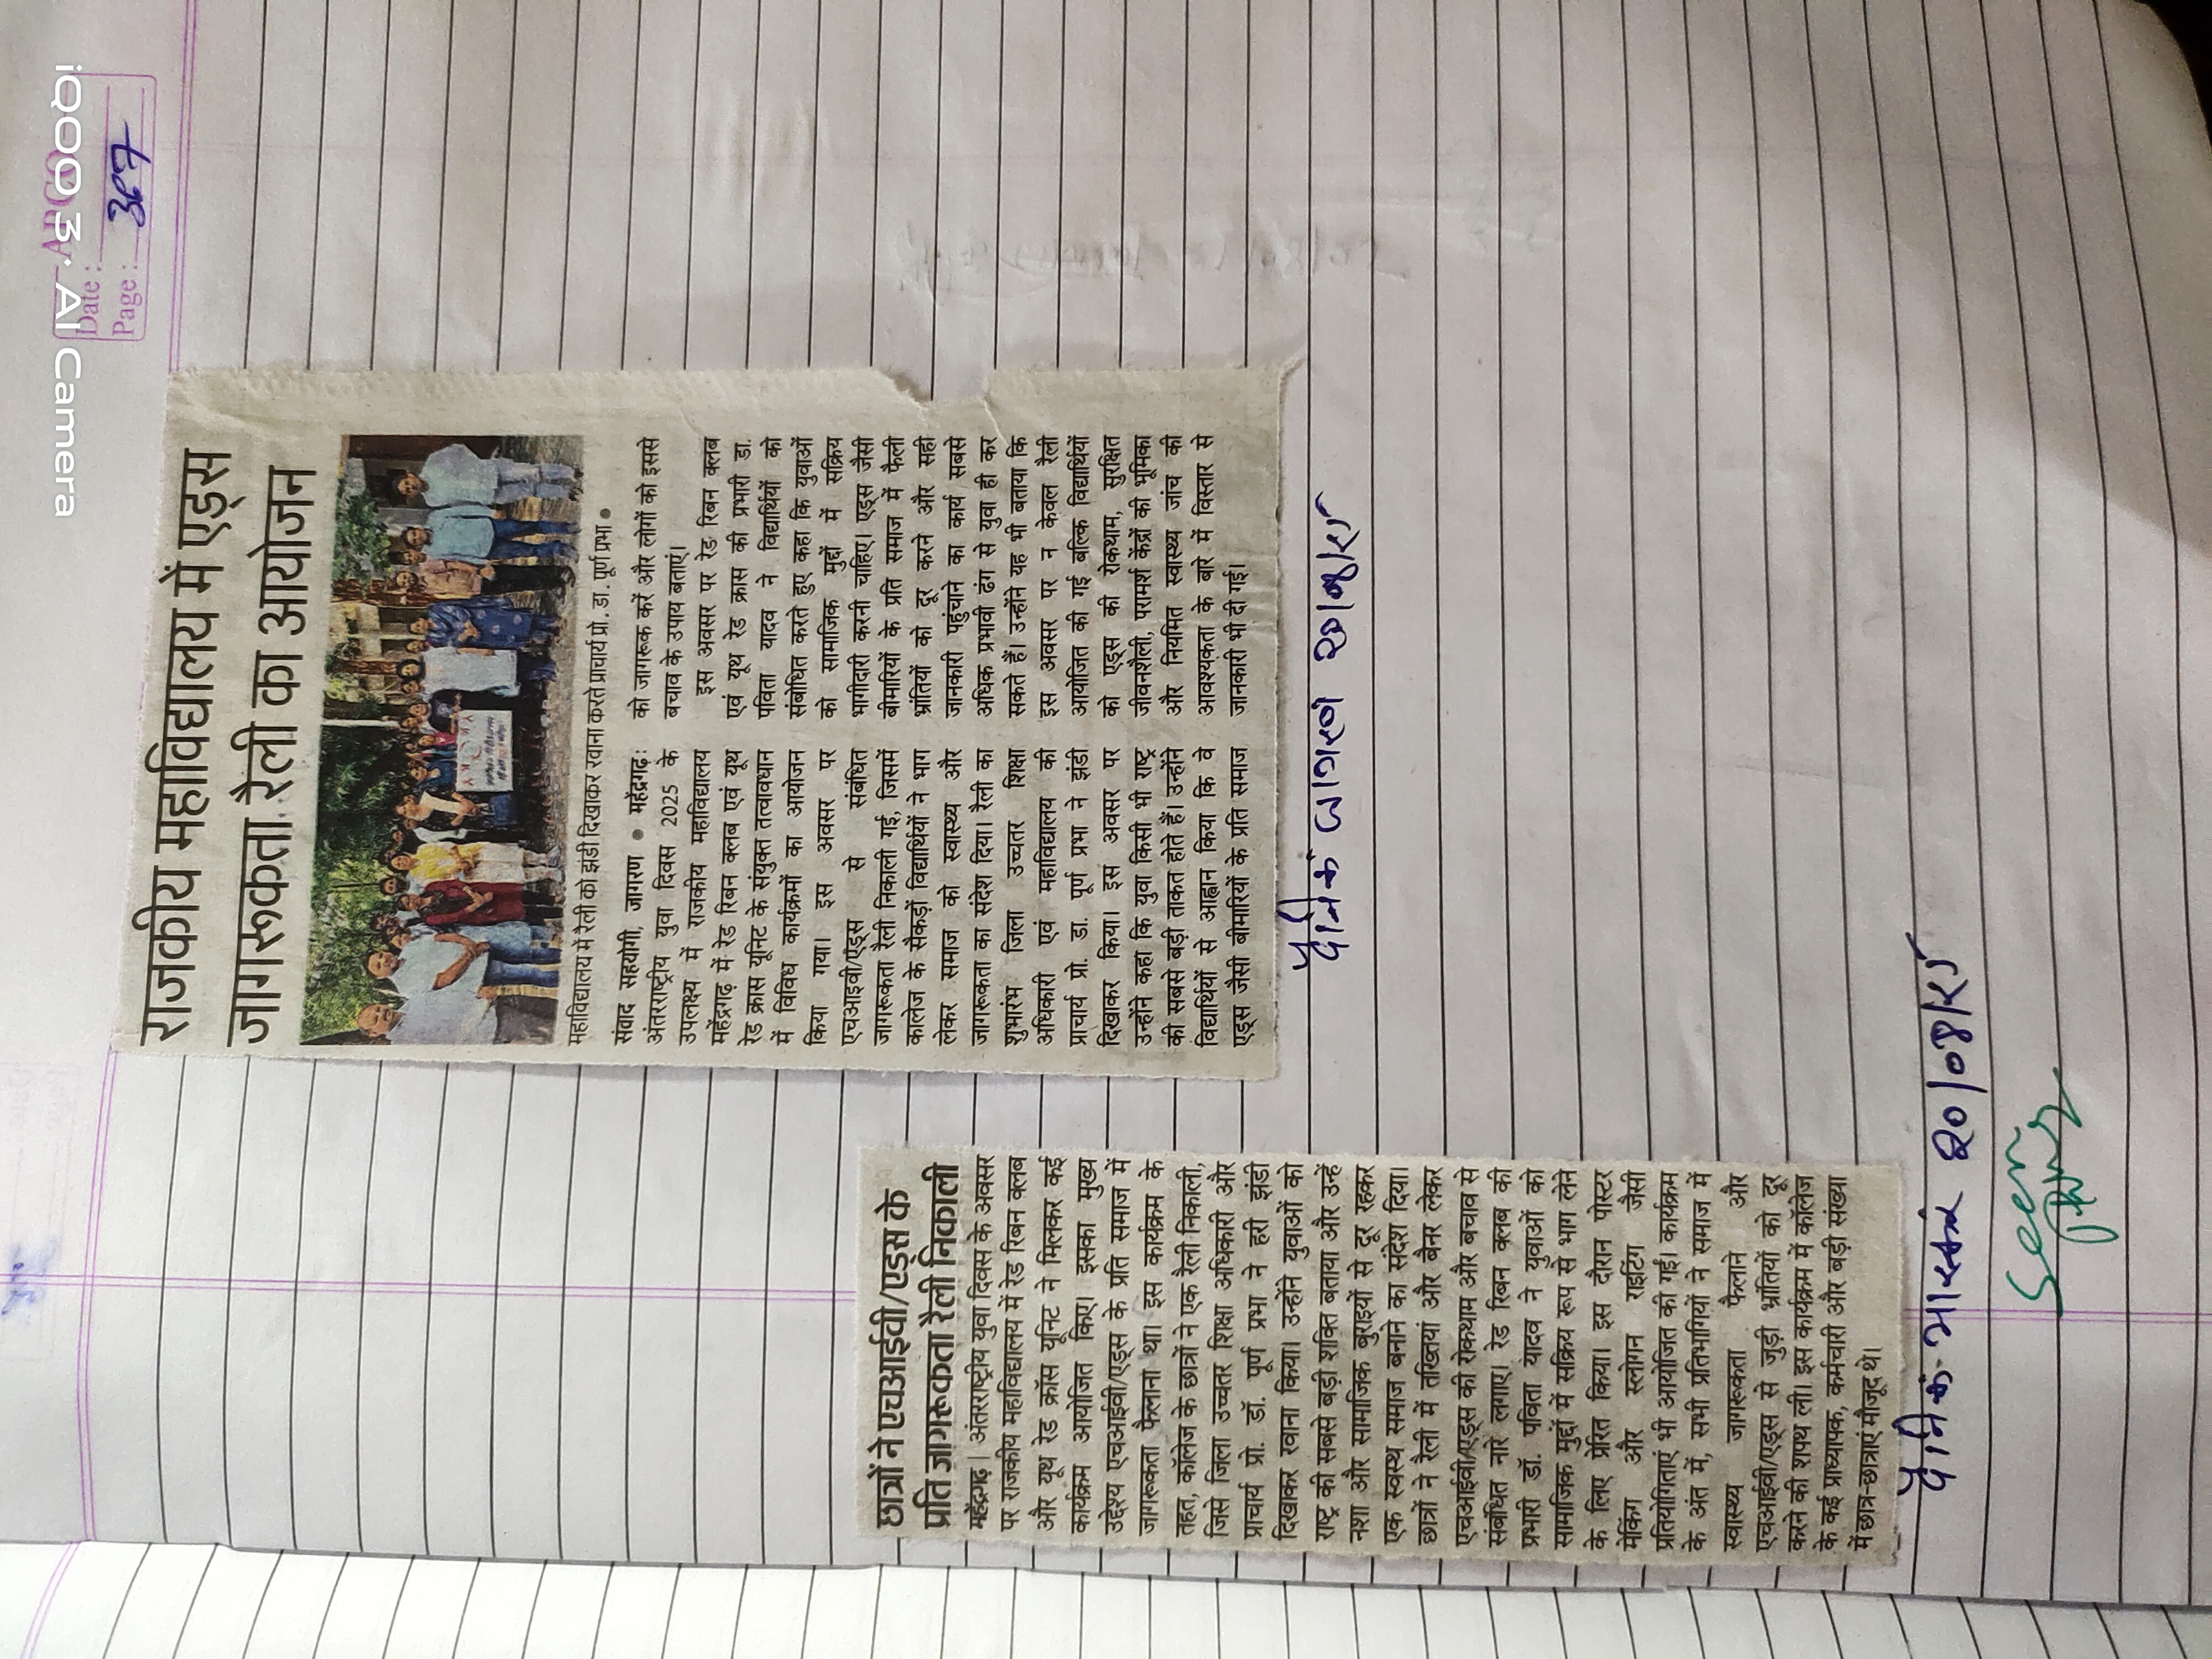 Date :
Page : 307
राजकीय महाविद्यालय में एड्स
जागरूकता रैली का आयोजन
महाविद्यालय में रैली को झंडी दिखाकर रवाना करते प्राचार्य प्रो. डा. पूर्ण प्रभा ●
संवाद सहयोगी, जागरण ● महेंद्रगढ़:
अंतरराष्ट्रीय युवा दिवस 2025 के
उपलक्ष्य में राजकीय महाविद्यालय
महेंद्रगढ़ में रेड रिबन क्लब एवं यूथ
रेड क्रास यूनिट के संयुक्त तत्वावधान
में विविध कार्यक्रमों का आयोजन
किया गया। इस अवसर पर
एचआइवी/एड्स से संबंधित
जागरूकता रैली निकाली गई, जिसमें
कालेज के सैकड़ों विद्यार्थियों ने भाग
लेकर समाज को स्वास्थ्य और
जागरूकता का संदेश दिया। रैली का
शुभारंभ जिला उच्चतर शिक्षा
अधिकारी एवं महाविद्यालय की
प्राचार्य प्रो. डा. पूर्ण प्रभा ने झंडी
दिखाकर किया। इस अवसर पर
उन्होंने कहा कि युवा किसी भी राष्ट्र
की सबसे बड़ी ताकत होते हैं। उन्होंने
विद्यार्थियों से आह्वान किया कि वे
एड्स जैसी बीमारियों के प्रति समाज
को जागरूक करें और लोगों को इससे
बचाव के उपाय बताएं।
इस अवसर पर रेड रिबन क्लब
एवं यूथ रेड क्रास की प्रभारी डा.
पविता यादव ने विद्यार्थियों को
संबोधित करते हुए कहा कि युवाओं
को सामाजिक मुद्दों में सक्रिय
भागीदारी करनी चाहिए। एड्स जैसी
बीमारियों के प्रति समाज में फैली
भ्रांतियों को दूर करने और सही
जानकारी पहुंचाने का कार्य सबसे
अधिक प्रभावी ढंग से युवा ही कर
सकते हैं। उन्होंने यह भी बताया कि
इस अवसर पर न केवल रैली
आयोजित की गई बल्कि विद्यार्थियों
को एड्स की रोकथाम, सुरक्षित
जीवनशैली, परामर्श केंद्रों की भूमिका
और नियमित स्वास्थ्य जांच की
आवश्यकता के बारे में विस्तार से
जानकारी भी दी गई।
दैनिक जागरण
छात्रों ने एचआईवी/एड्स के
प्रति जागरूकता रैली निकाली
महेंद्रगढ़ | अंतरराष्ट्रीय युवा दिवस के अवसर
पर राजकीय महाविद्यालय में रेड रिबन क्लब
और यूथ रेड क्रॉस यूनिट ने मिलकर कई
कार्यक्रम आयोजित किए। इसका मुख्य
उद्देश्य एचआईवी/एड्स के प्रति समाज में
जागरूकता फैलाना था। इस कार्यक्रम के
तहत, कॉलेज के छात्रों ने एक रैली निकाली,
जिसे जिला उच्चतर शिक्षा अधिकारी और
प्राचार्य प्रो. डॉ. पूर्ण प्रभा ने हरी झंडी
दिखाकर रवाना किया। उन्होंने युवाओं को
राष्ट्र की सबसे बड़ी शक्ति बताया और उन्हें
नशा और सामाजिक बुराइयों से दूर रहकर
एक स्वस्थ समाज बनाने का संदेश दिया।
छात्रों ने रैली में तख्तियां और बैनर लेकर
एचआईवी/एड्स की रोकथाम और बचाव से
संबंधित नारे लगाए। रेड रिबन क्लब की
प्रभारी डॉ. पविता यादव ने युवाओं को
सामाजिक मुद्दों में सक्रिय रूप से भाग लेने
के लिए प्रेरित किया। इस दौरान पोस्टर
मेकिंग और स्लोगन राइटिंग जैसी
प्रतियोगिताएं भी आयोजित की गई। कार्यक्रम
के अंत में, सभी प्रतिभागियों ने समाज में
स्वास्थ्य जागरूकता फैलाने और
एचआईवी/एड्स से जुड़ी भ्रांतियों को दूर
करने की शपथ ली। इस कार्यक्रम में कॉलेज
के कई प्राध्यापक, कर्मचारी और बड़ी संख्या
में छात्र-छात्राएं मौजूद थे।
दैनिक भास्कर २०/०८/२५
Seen
iQOO 3· AI Camera